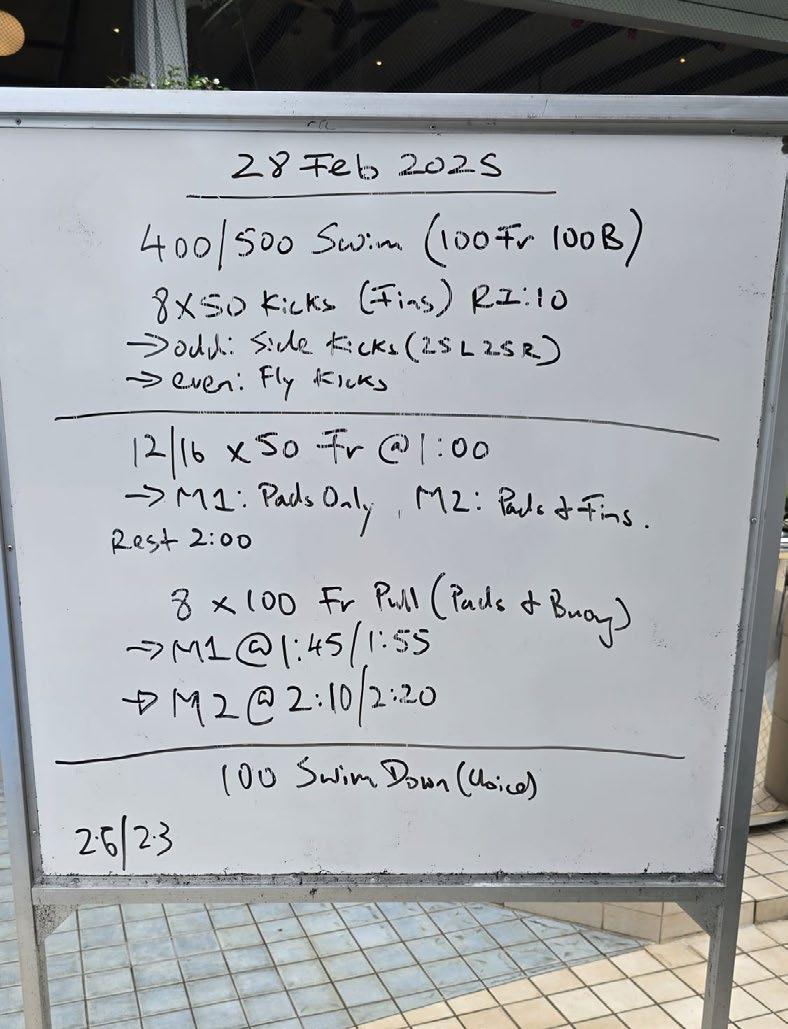 28 Feb 2025
400/500 Swim (100Fr 100B)
8x50 Kicks (Fins) RI:10
→ odd: Side Kicks (25L 25R)
→ even: Fly Kicks
12/16 x 50 Fr @1:00
→ M1: Pads Only, M2: Pads + Fins.
Rest 2:00
8 x 100 Fr Pull (Pads + Buoy)
→ M1 @ 1:45/1:55
→ M2 @ 2:10/2:20
100 Swim Down (Choice)
2.6/2.3